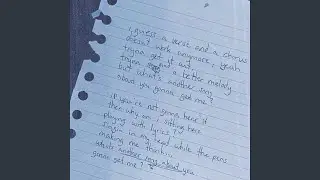 I guess a verse and a chorus
doesn't work anymore, yeah
tryna get it out,
tryna a better melody
but what's another song
about you gonna get me?
if you're not gonna hear it
then why am I sitting here
playing with lyrics?
in my head while the pens
making me think...
whats another song about you
gonna get me?